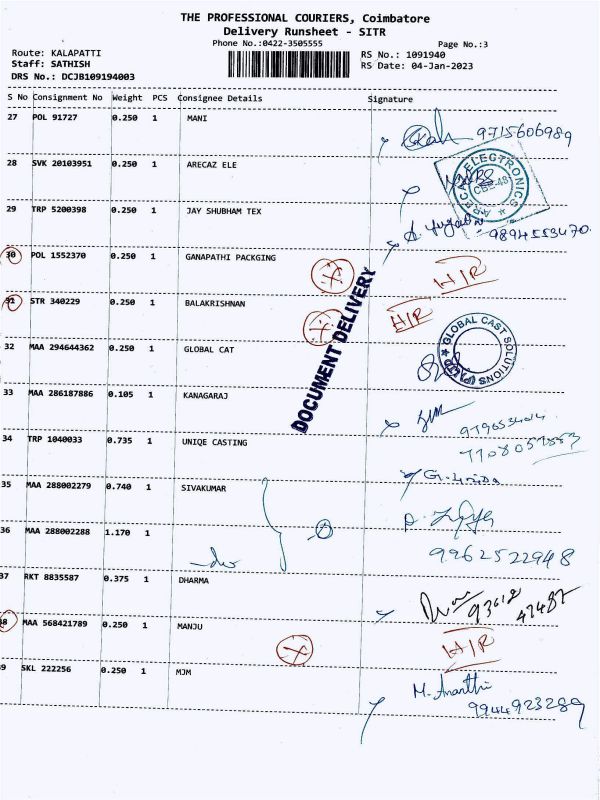 THE PROFESSIONAL COURIERS, Coimbatore
Delivery Runsheet - SITR
Phone No.:0422-3505555
Page No.:3
Route: KALAPATTI
RS No.: 1091940
Staff: SATHISH
RS Date: 04-Jan-2023
DRS No.: DCJB109194003
S No Consignment No Weight PCS Consignee Details Signature
27 POL 91727 0.250 1 MANI
9715606989
28 SVK 20103951 0.250 1 ARECAZ ELE
ARECAZ ELECTRONICS
29 TRP 5200398 0.250 1 JAY SHUBHAM TEX
9894553470
30 POL 1552370 0.250 1 GANAPATHI PACKGING
H/R
31 STR 340229 0.250 1 BALAKRISHNAN
H/R
DOCUMENT DELIVERY
32 MAA 294644362 0.250 1 GLOBAL CAT
GLOBAL CAST SOLUTIONS (P) LTD
33 MAA 286187886 0.105 1 KANAGARAJ
34 TRP 1040033 0.735 1 UNIQE CASTING
35 MAA 288002279 0.740 1 SIVAKUMAR
36 MAA 288002288 1.170 1
9962522948
37 RKT 8835587 0.375 1 DHARMA
93612
47487
38 MAA 568421789 0.250 1 MANJU
H/R
39 SKL 222256 0.250 1 MJM
M. Ananthi
9944923289